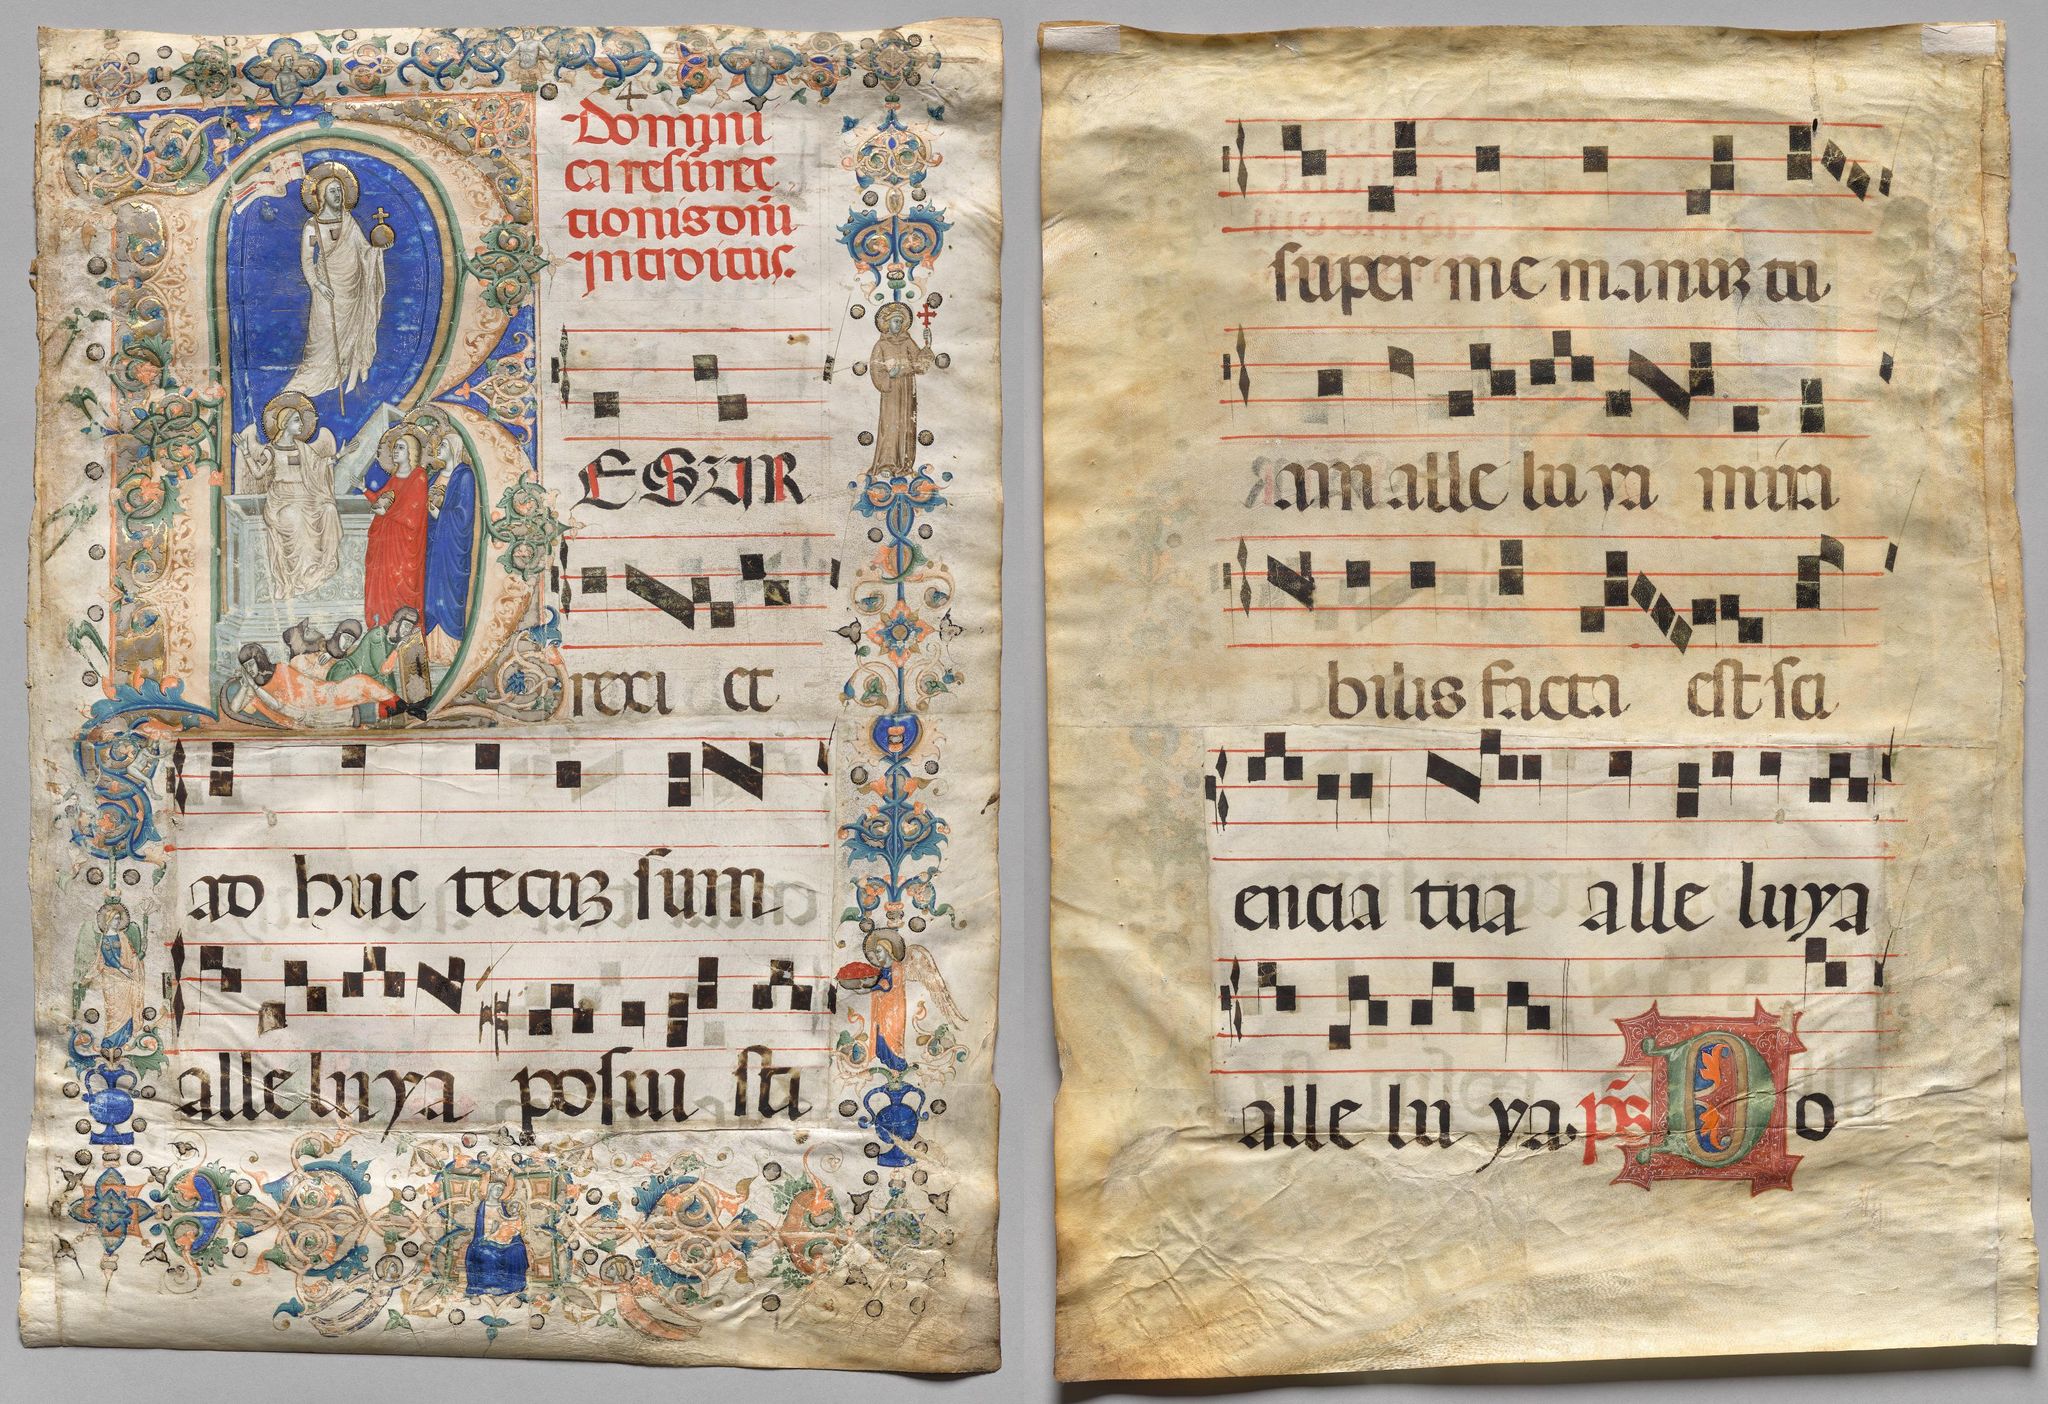 Domini
ca resurec
tionis dni
introitus.
RESUR
rexi et
ad huc tecuz sum
alleluya posui sti
super me manuz tu
am alle lu ya mira
bilis facta est sci
encia tua alle luya
alle lu ya. ps Do